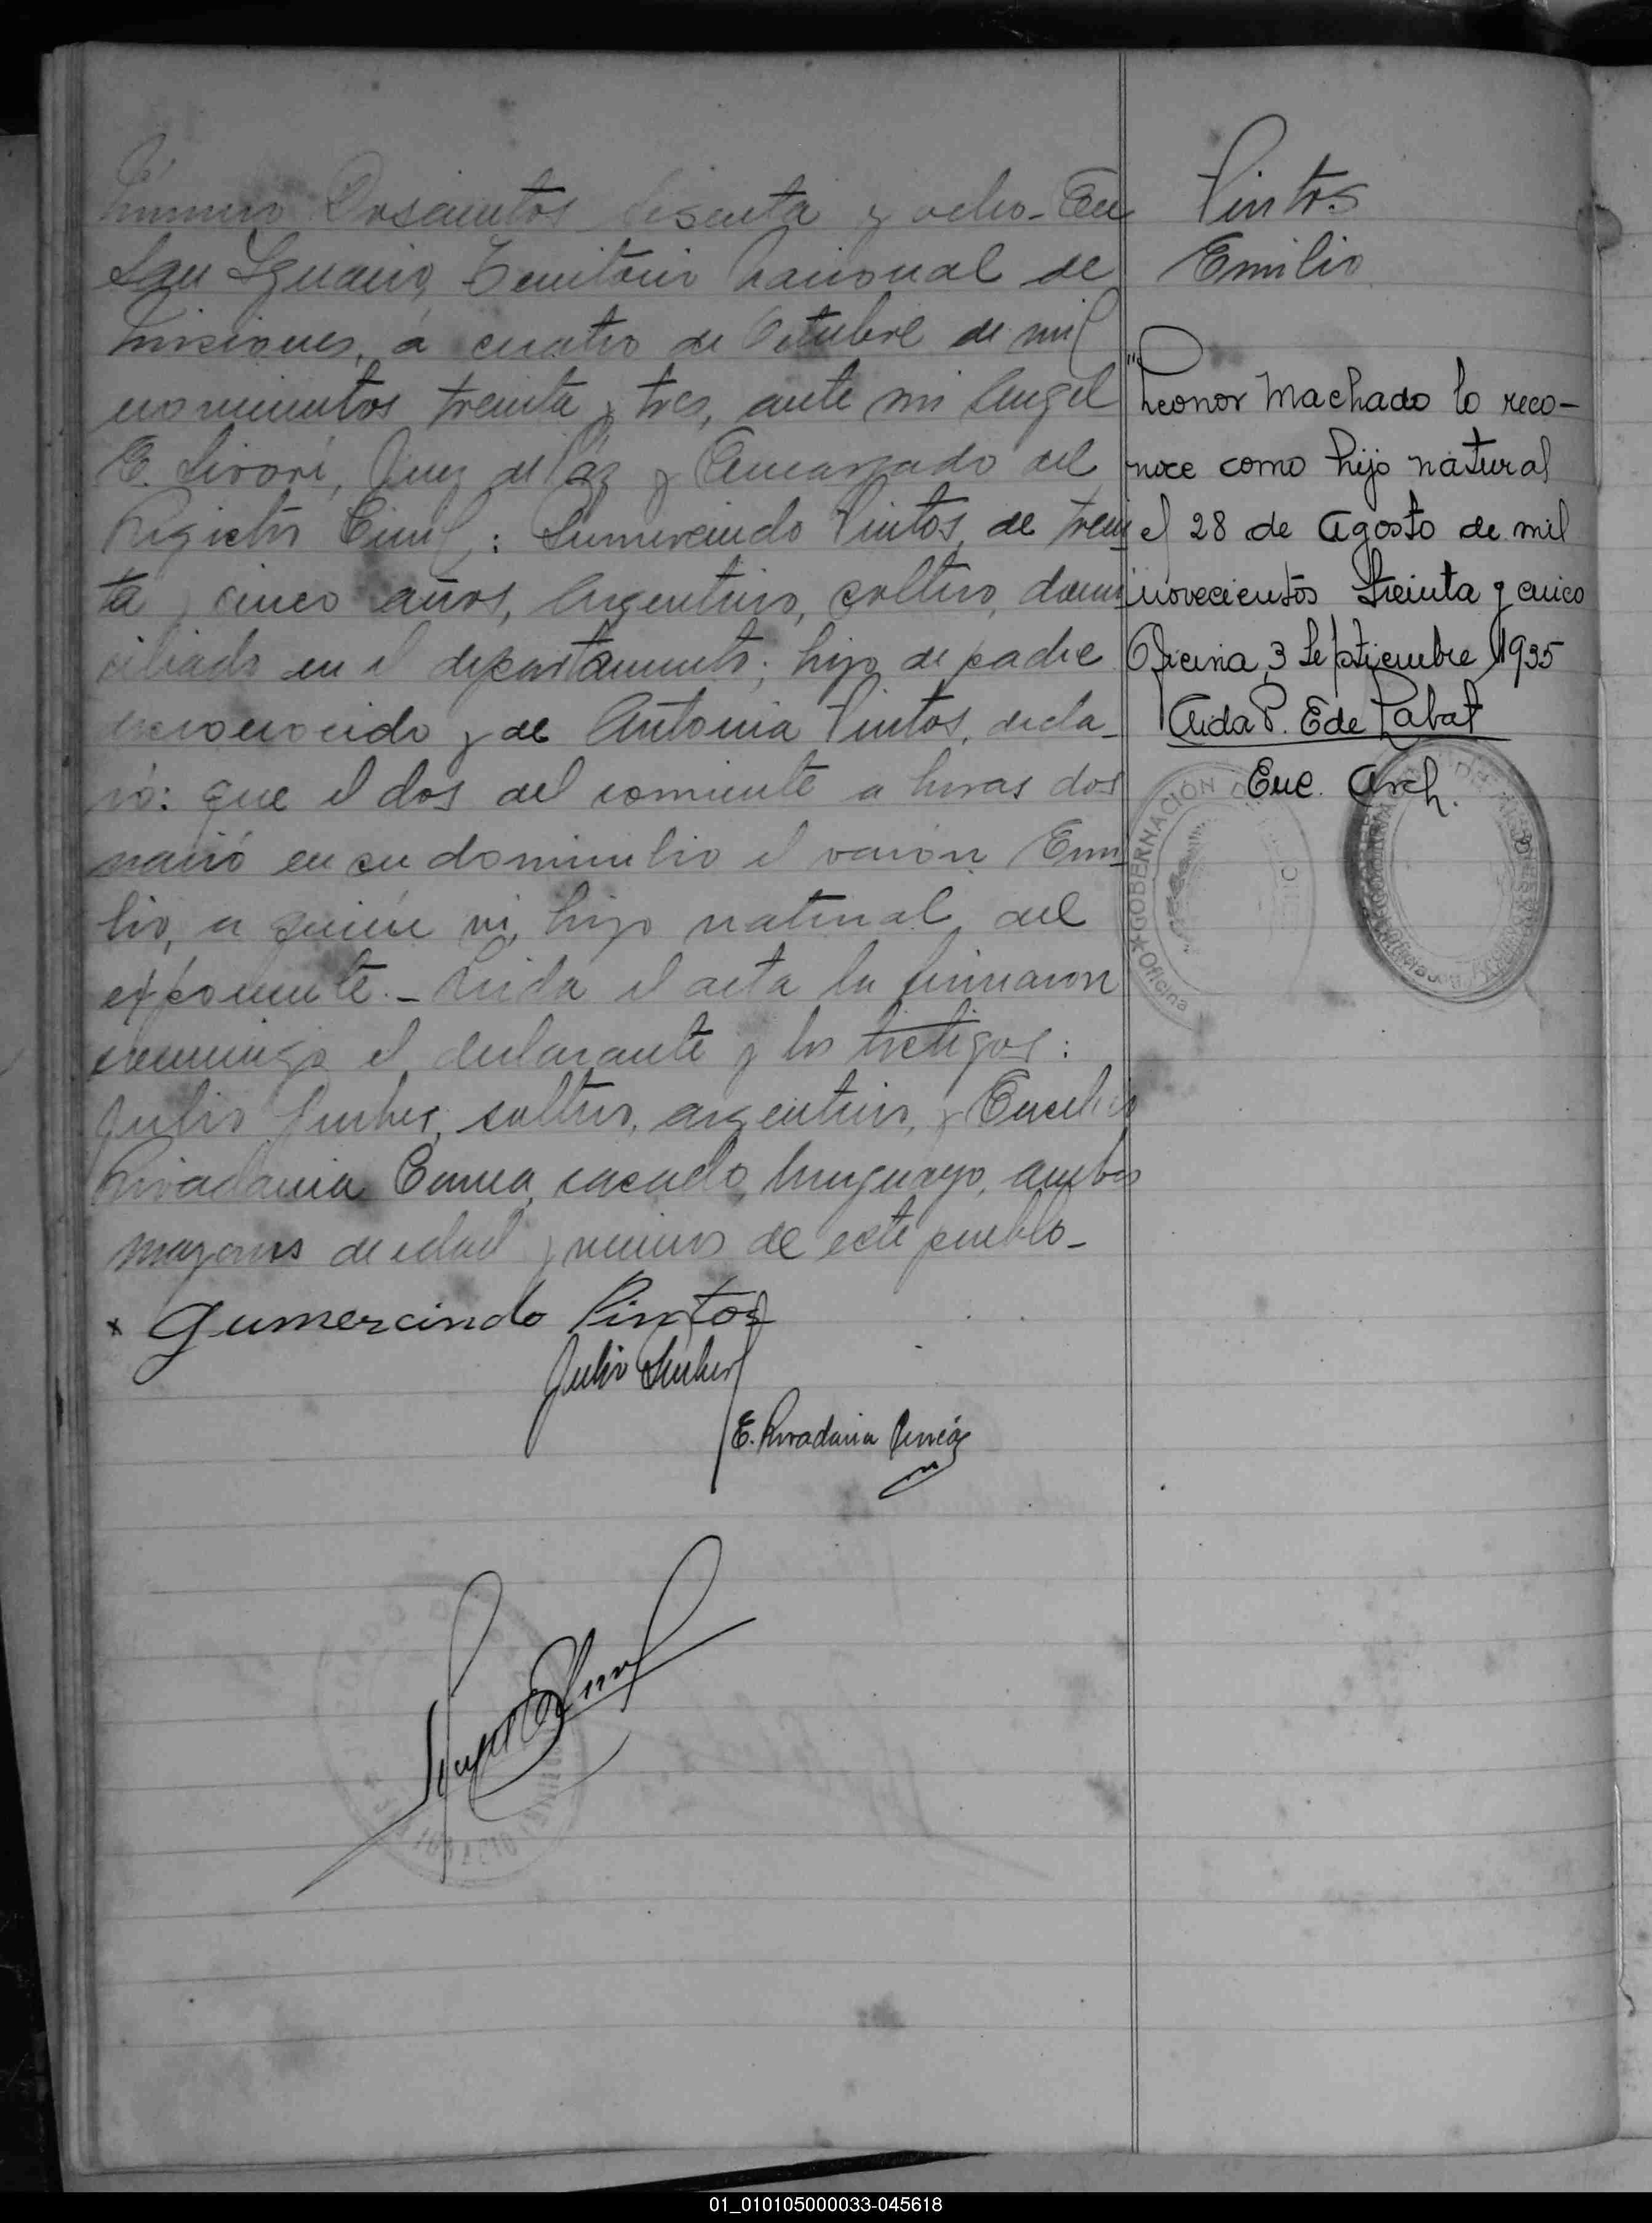 Número Doscientos sesenta y ocho - En
San Ignacio, Territorio Nacional de
Misiones, á cuatro de Octubre de mil
novecientos treinta y tres, ante mi Angel
E. Sivori, Juez de Páz y Encargado del
Registro Civil; : Gumercindo Pintos, de trein
ta y cinco años, Argentino, soltero, domi
ciliado en el departamento; hijo de padre
desconocido y de Antonia Pintos, decla-
ró: que el dos del corriente a horas dos
nació en su domicilio el varón Emi
lio, a quien ví, hijo natural del
exponente. - Leida el acta la firmaron
conmigo el declarante y los testigos:
Julio, soltero, argentino, y
Rivadavia, casado, Uruguayo, ambos
mayores de edad y vecinos de este pueblo -
x Gumercindo Pintos
Julio
E. Rivadavia
Pintos
Emilio
"Leonor Machado lo reco-
noce como hijo natural
el 28 de Agosto de mil
novecientos treinta y cinco
Oficina, 3 Septiembre 1935
Aida P. E de Labat
Enc. Arch.
GOBERNACIÓN
Oficina
01_010105000033-045618